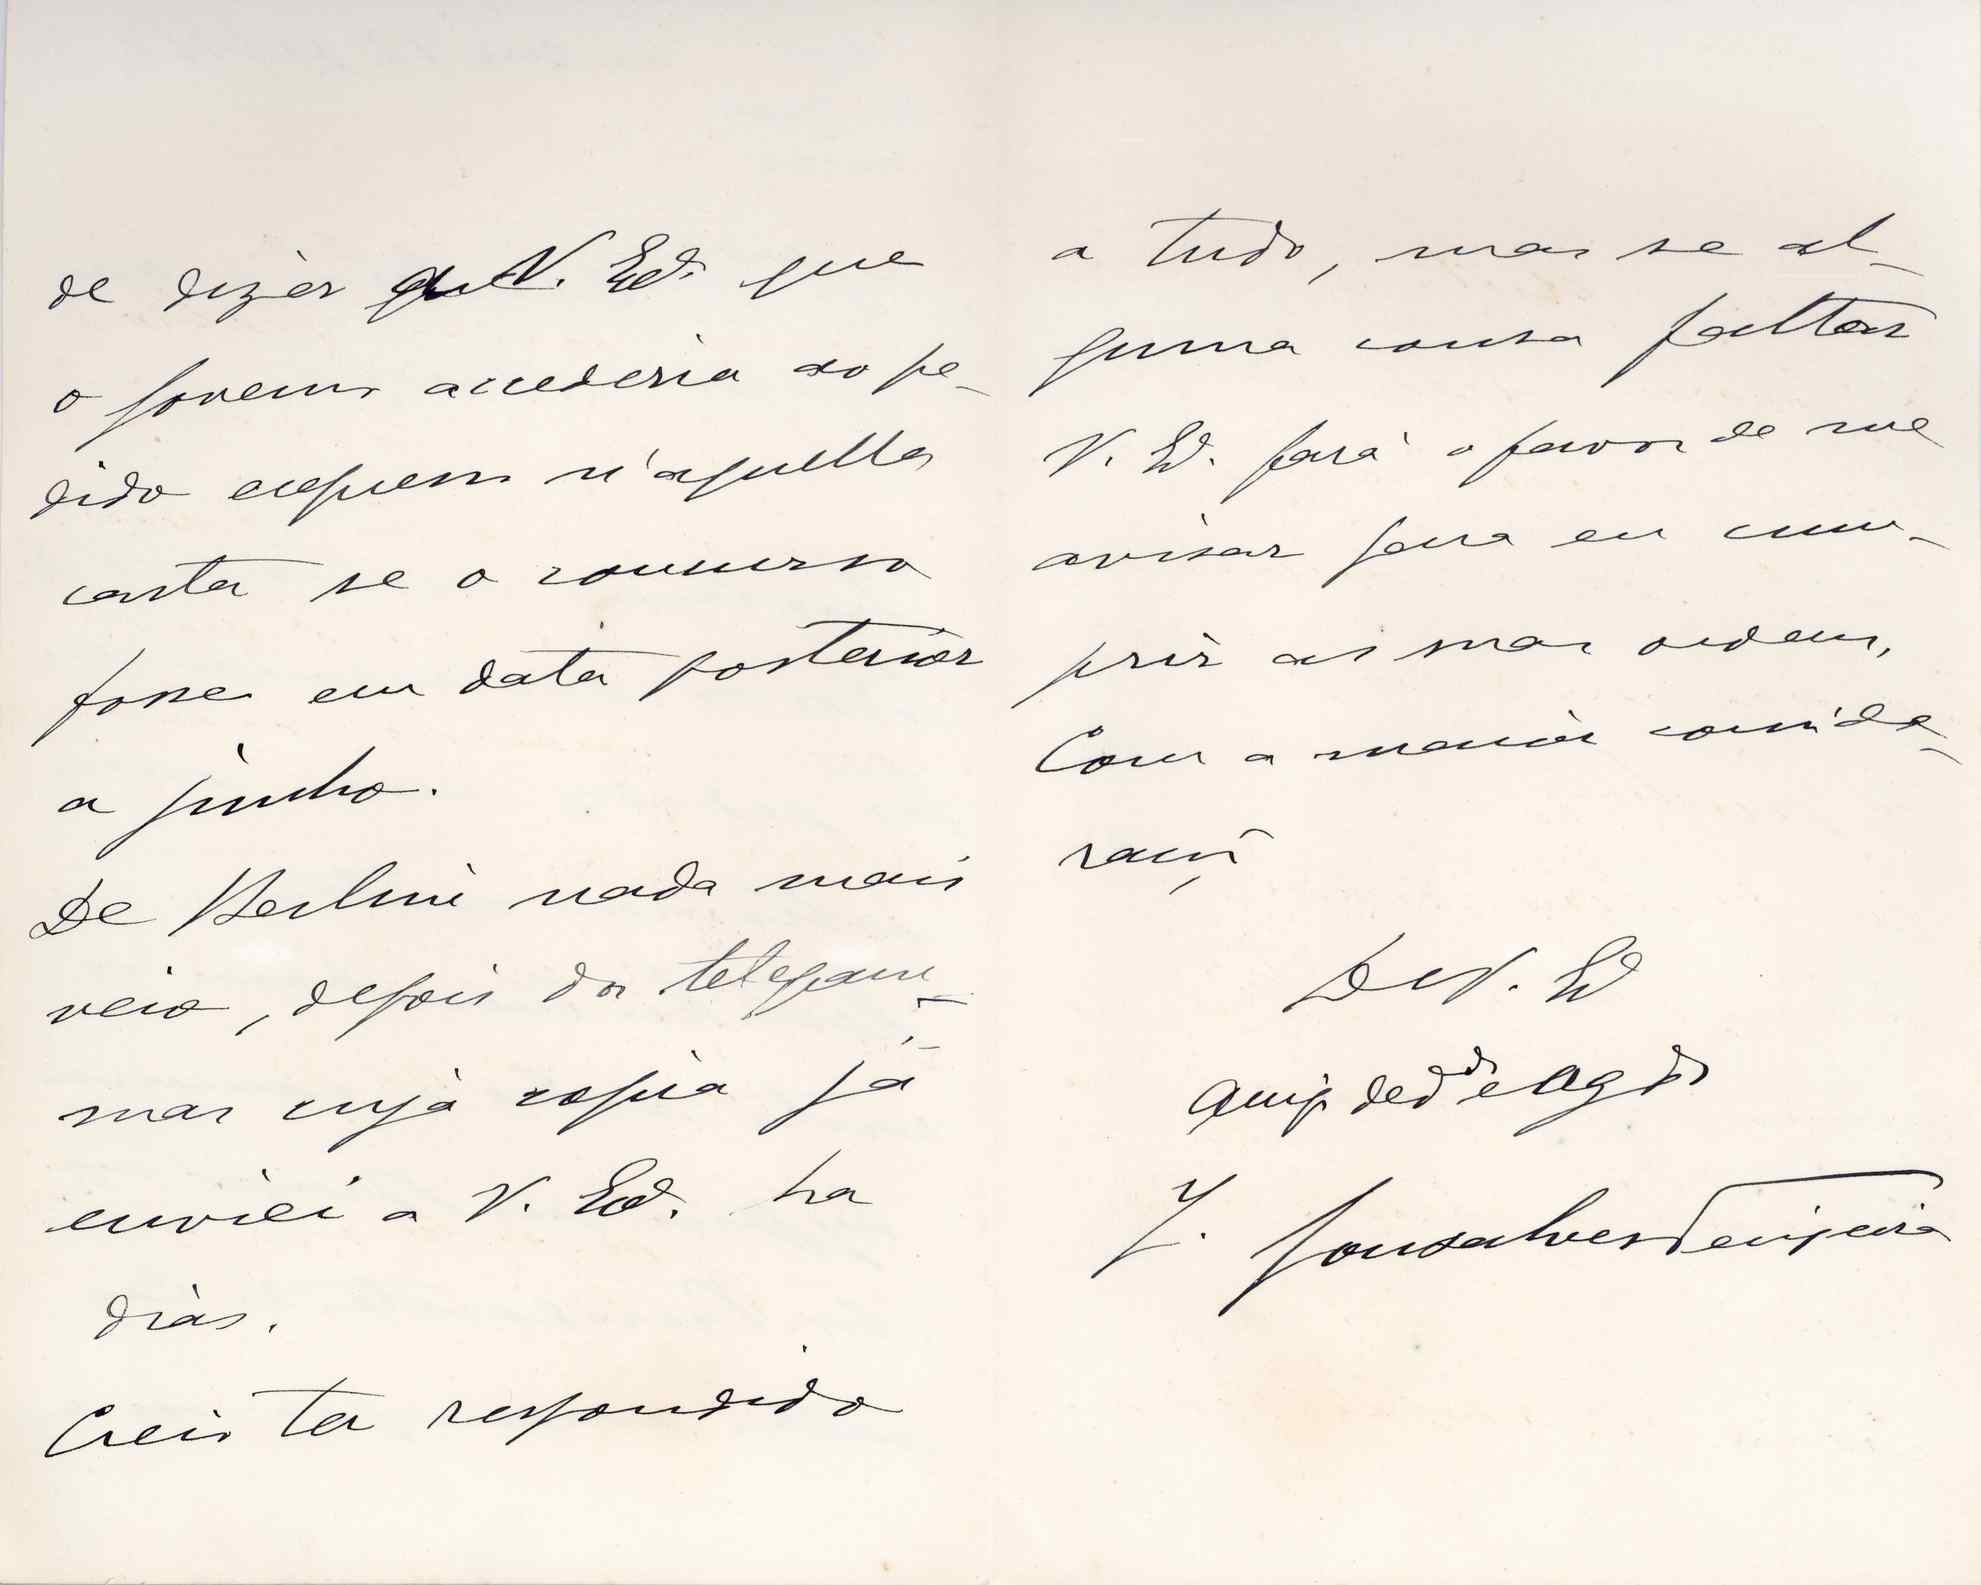 de dizer a V. Ex.ª que
o joven accederia ao pe-
dido n'aquella
carta se o concurso
fosse em data posterior
a junho.
De Berlim nada mais
veio, depois do telegram-
ma cuja copia já
enviei a V. Ex.ª ha
dias.
Creio ter respondido
a tudo, mas se al-
guma cousa faltar
V. Ex.ª fará o favor de me
avisar para eu cum-
prir as suas ordens.
Com a maior conside-
ração
De V. Ex.ª
Amig. ded.do e Obg.do
J. Gonsalves Teixeira